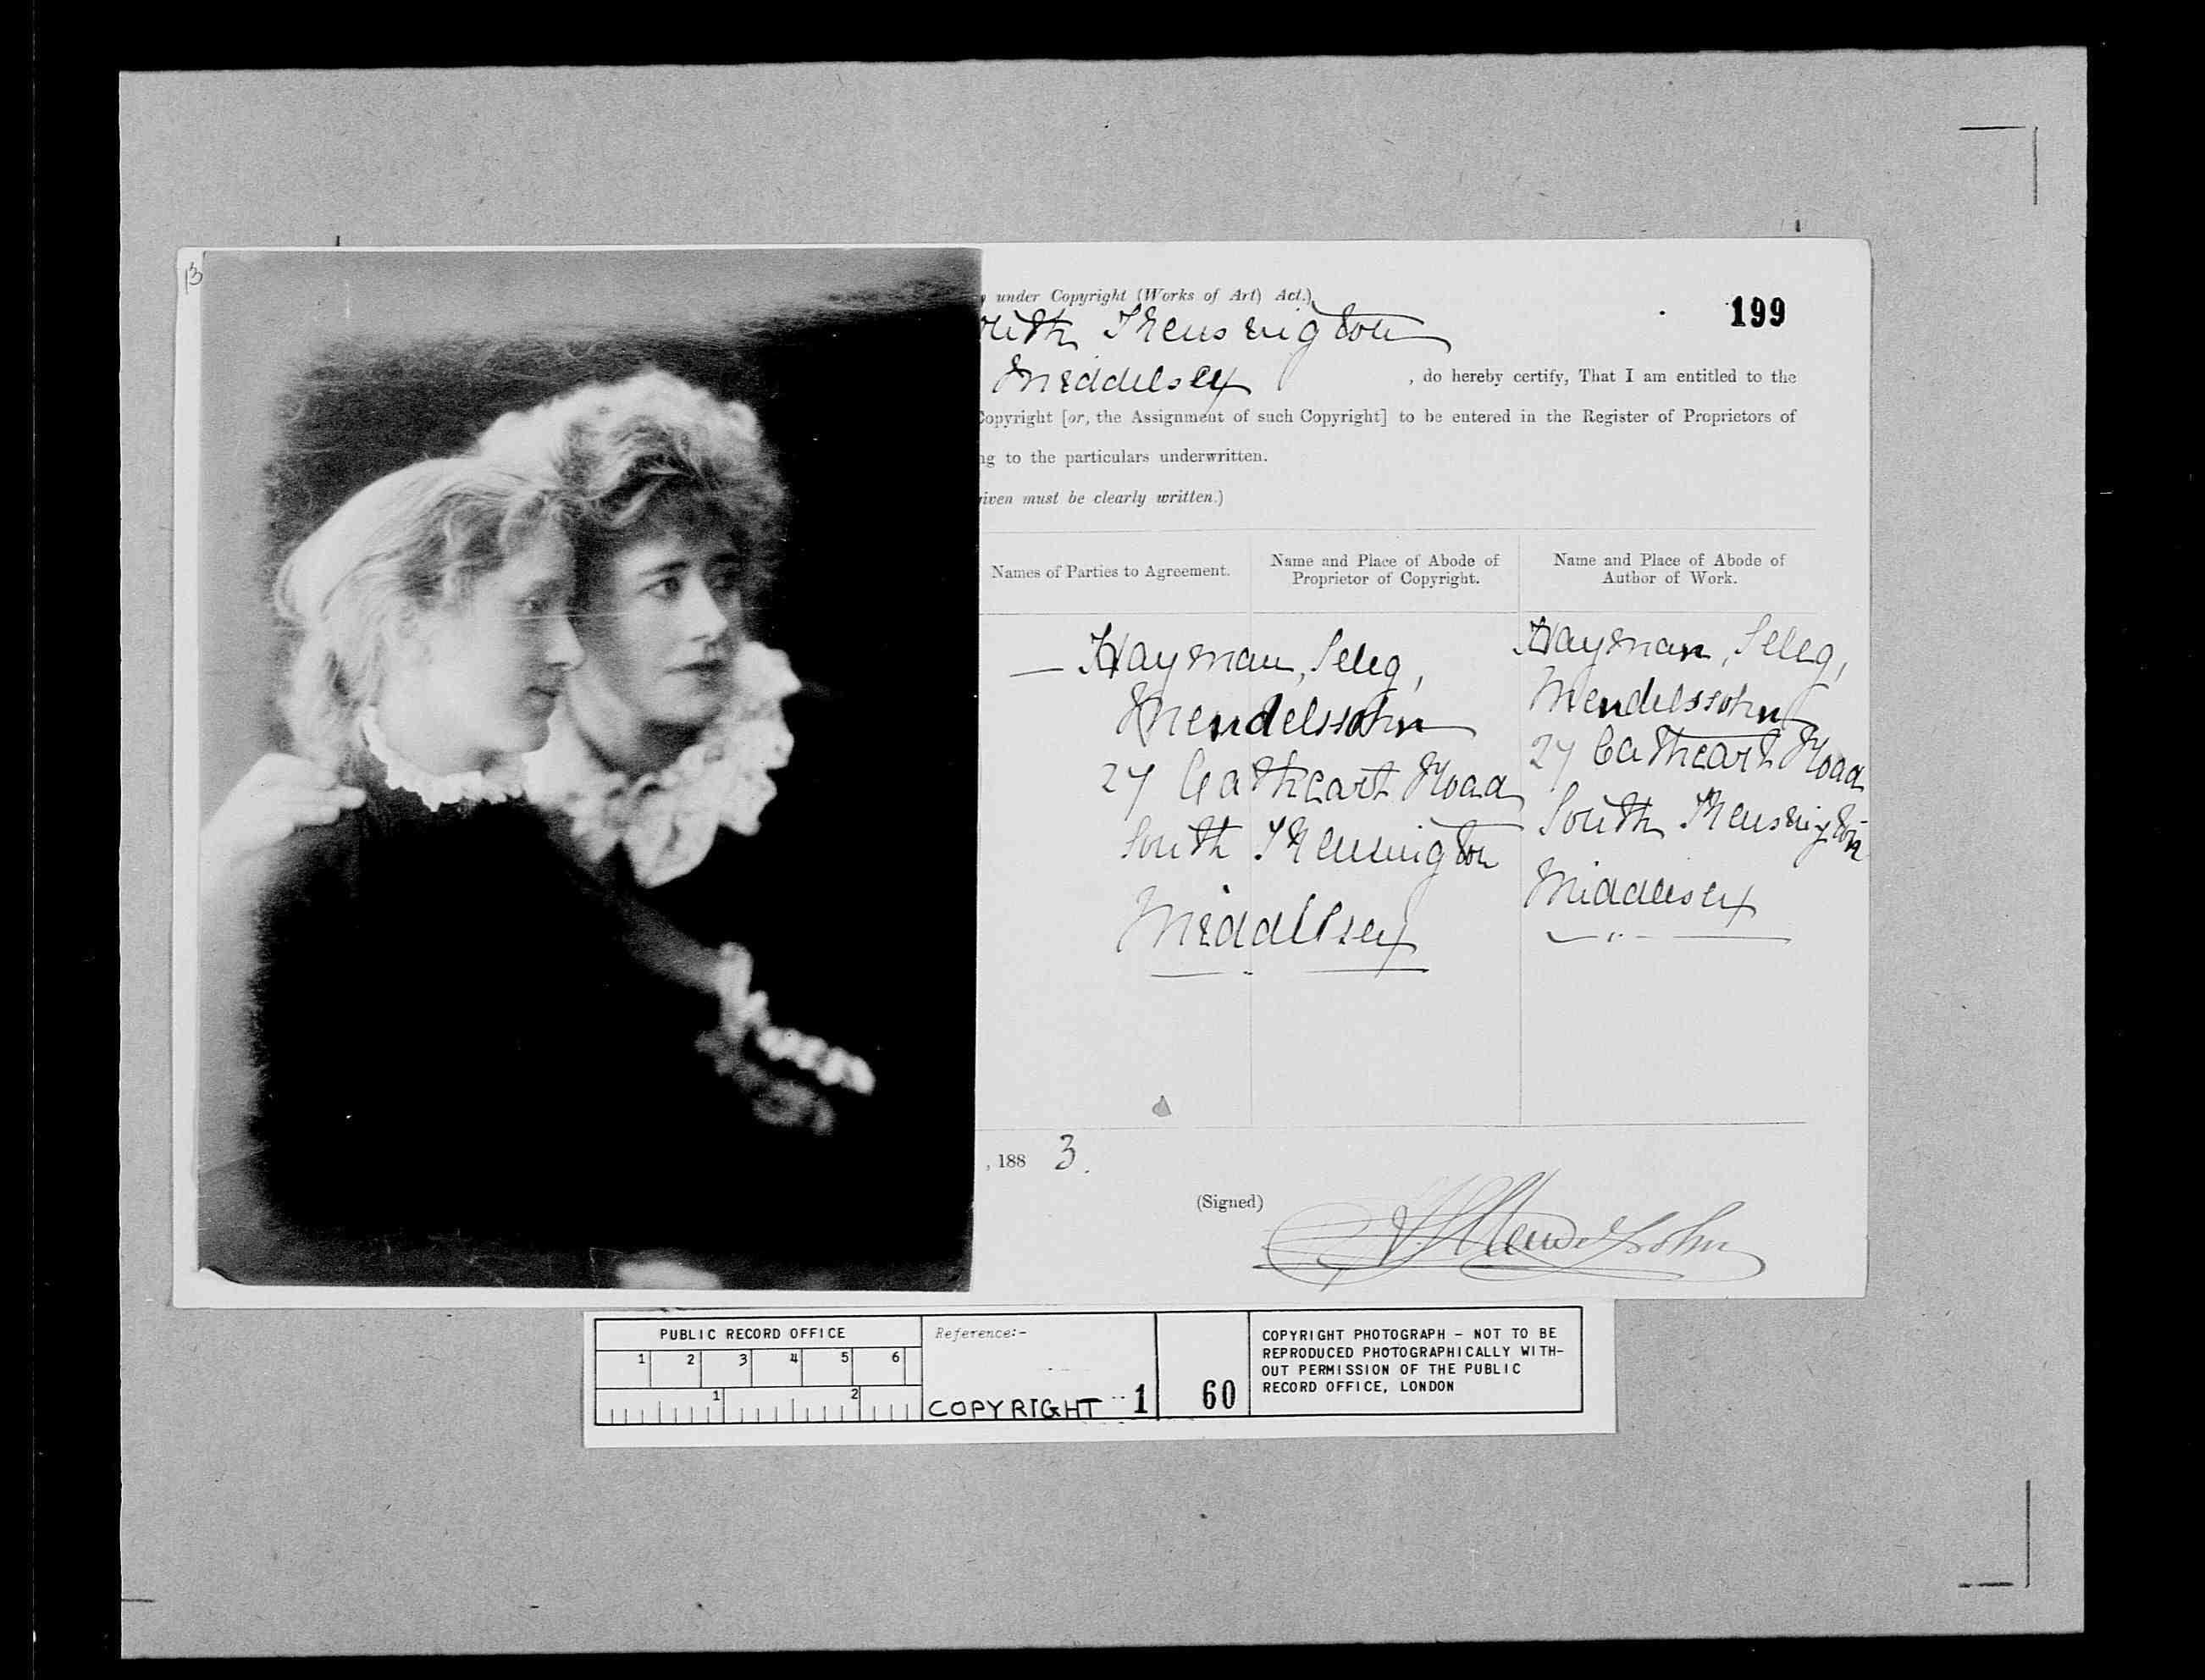 13
under Copyright (Works of Art) Act.)
199
outh Kensington
Middelsex
, do hereby certify, That I am entitled to the
Copyright [or, the Assignment of such Copyright] to be entered in the Register of Proprietors of
ng to the particulars underwritten.
given must be clearly written.)
Names of Parties to Agreement.
Name and Place of Abode of
Proprietor of Copyright.
Name and Place of Abode of
Author of Work.
— Hayman, Seleg,
Mendelssohn
27 Cathcart Road
South Kensington
Middelsex
Hayman, Seleg,
Mendelssohn
27 Cathcart Road
South Kensington
Middlesex
, 188 3.
(Signed)
Mendelssohn
PUBLIC RECORD OFFICE
1 2 3 4 5 6
1 2
Reference:-
COPYRIGHT 1
60
COPYRIGHT PHOTOGRAPH - NOT TO BE
REPRODUCED PHOTOGRAPHICALLY WITH-
OUT PERMISSION OF THE PUBLIC
RECORD OFFICE, LONDON